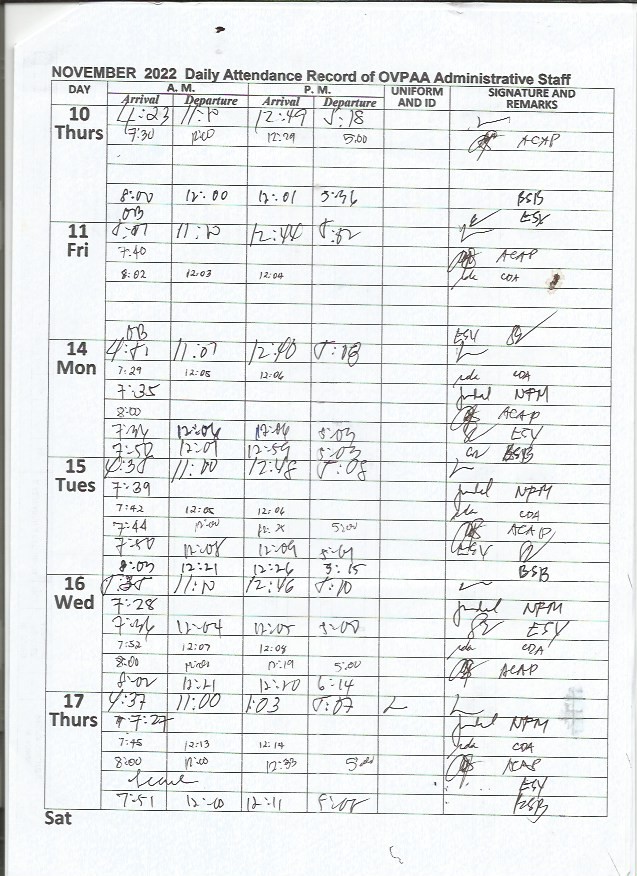 NOVEMBER 2022 Daily Attendance Record of OVPAA Administrative Staff
DAY A. M. P. M. UNIFORM AND ID SIGNATURE AND REMARKS
Arrival Departure Arrival Departure
10 Thurs
4:23 11:10 12:49 5:18
7:30 12:00 12:29 5:00 ACAP
8:00 12:00 12:01 5:36 BSB
OB ESY
11 Fri
11:10 12:44 5:02
7:40 ACAP
8:02 12:03 12:04 COA
OB ESY
14 Mon
11:07 12:40 5:03
7:29 12:05 12:06 COA
7:35 NPM
8:00 ACAP
7:36 12:06 12:06 5:03 ESY
7:50 12:07 12:59 5:03 BSB
15 Tues
4:38 11:00 12:48 5:08
7:39 NPM
7:42 12:05 12:06 COA
7:44 12:00 5:00 ACAP
7:50 12:08 12:09 5:01 ESY
8:03 12:21 12:26 5:15 BSB
16 Wed
11:10 12:46 5:10
7:28 NPM
7:36 12:04 12:05 5:00 ESY
7:52 12:07 12:08 COA
8:00 12:00 12:19 5:00 ACAP
8:02 12:21 6:14
17 Thurs
4:37 11:00 1:03 5:07
7:27 NPM
7:45 12:13 12:14 COA
8:00 12:00 12:33 5:00 ACAP
Leave ESY
7:51 12:10 12:11 5:05 BSB
Sat